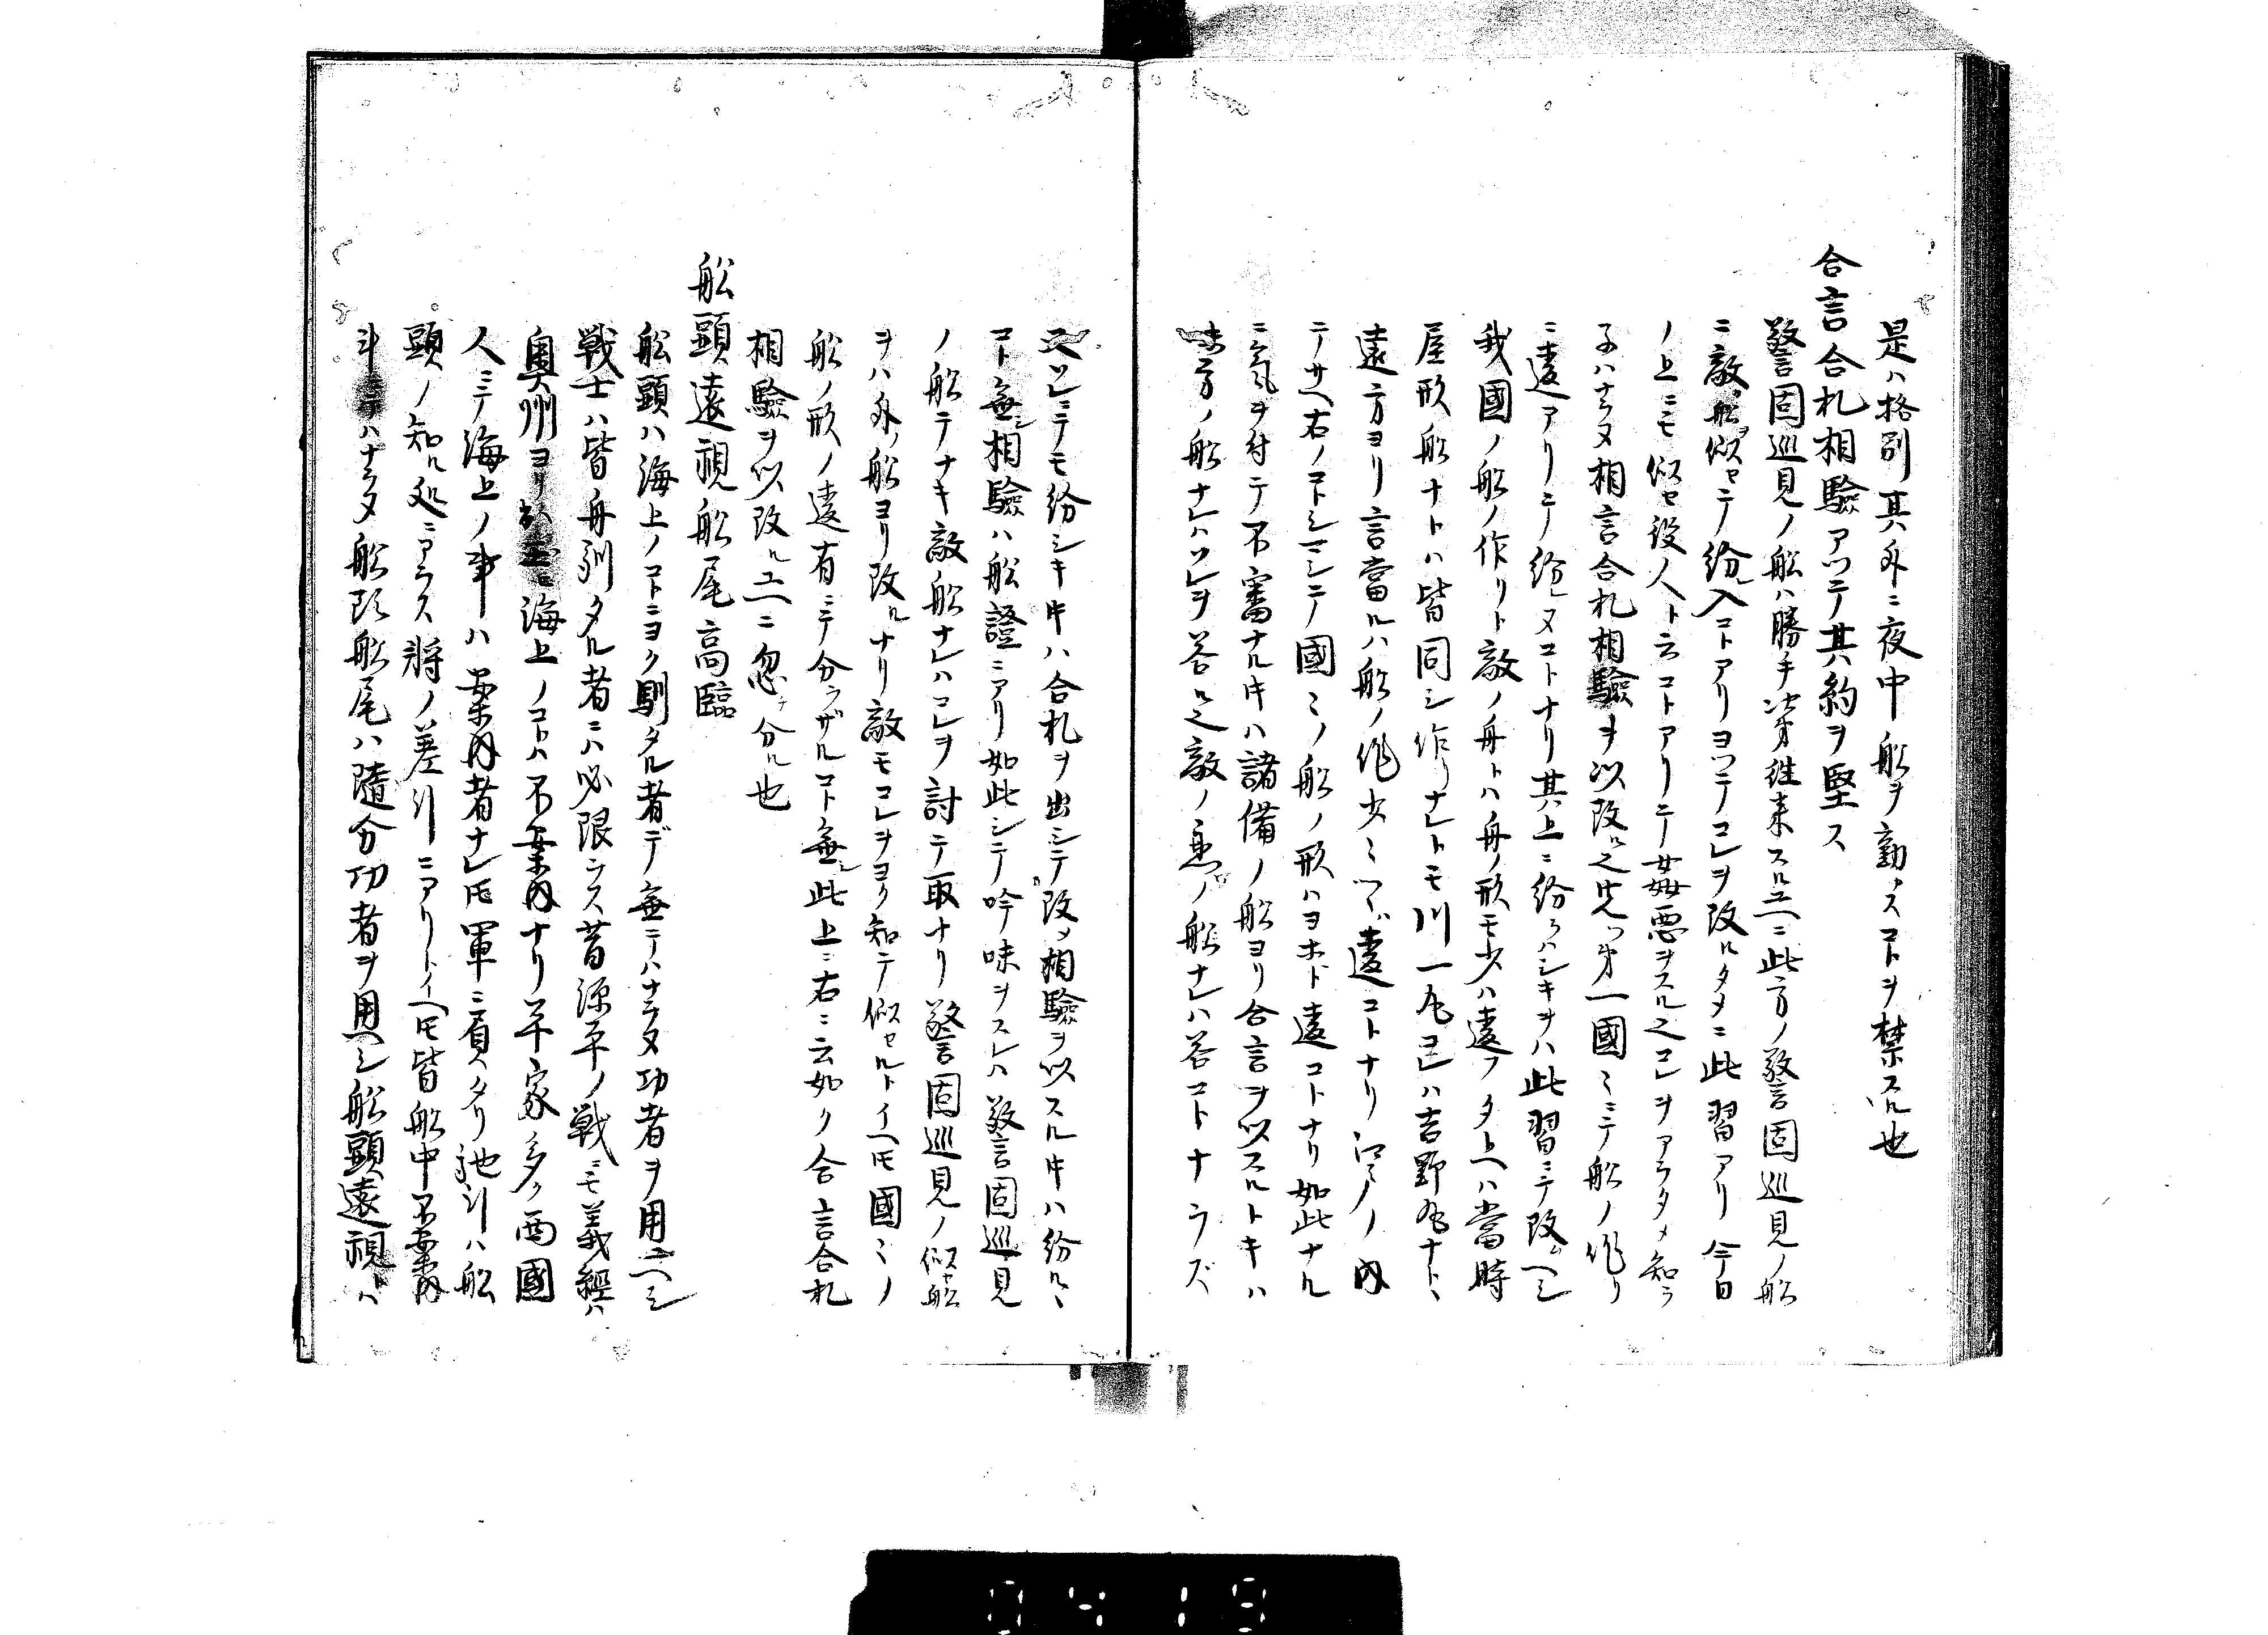 是ハ格別其外ニ夜中船ヲ動スコトヲ禁スル也
合言合札相驗アツテ其約ヲ堅ス
警固巡見ノ船ハ勝手次第往来スルユヘニ此方ノ警固巡見ノ船
ニ敵船似セテ紛入コトアリヨツテコレヲ改ルタメニ此習アリ今日
ノ上ニモ似セ役人ト云コトアリテ姦悪ヲスル之コレヲアラタメ知ラ
子ハナラヌ相言合札相驗ヲ以改ル之先ツ第一國〻ニテ船ノ作リ
ニ違アリテ紛レヌコトナリ其上ニ紛ラハシキヲハ此習ニテ改ヘシ
我國ノ船ノ作リト敵ノ舟トハ舟ノ形モ少ハ違フタ上ヘハ當時
屋形船ナトハ皆同シ作リナレトモ川一丸コレハ吉野丸ナト丶
遠方ヨリ言當ルハ船ノ作少〻ツヽ違コトナリ江戸ノ内
ニテサヘ右ノコトシマシテ國〻ノ船ノ形ハヨホド違コトナリ如此ナル
ニ氣ヲ付テ不審ナル片ハ諸備ノ船ヨリ合言ヲ以スルトキハ
味方ノ船ナレハソレヲ答ル之敵ノ忍ノ船ナレハ答コトナラズ
又ソレニテモ紛シキ片ハ合札ヲ出シテ改相驗ヲ以スル片ハ紛ル丶
コト無相驗ハ船證ニアリ如此シテ吟味ヲスレハ警固巡見
ノ船テナキ敵船ナレハコレヲ討テ取ナリ警固巡見ノ似セ船
ヲハ外ノ船ヨリ改ルナリ敵モコレヲヨク知テ似セルトイヘ𪜈國〻ノ
船ノ形ノ違有ニテ分ラザルコト無此上ニ右ニ云如ク合言合札
相驗ヲ以改ルユヘニ忽チ分ル也
船頭遠視船尾高臨
船頭ハ海上ノコトニヨク馴タル者デ無テハナラヌ功者ヲ用ユヘシ
戦士ハ皆舟馴タル者ニハ必限ラス昔源平ノ戦ニモ義經ハ
奥州ヨリ出海上ノコトハ不案内ナリ平家多ク西國
人ニテ海上ノ事ハ案内者ナレ𪜈軍ニ負タリ馳引ハ船
頭ノ知ル処ニアラス將ノ差引ニアリトイヘ𪜈皆船中不案内
斗ニテハナラヌ船頭船尾ハ隨分功者ヲ用ヘシ船頭遠視トハ